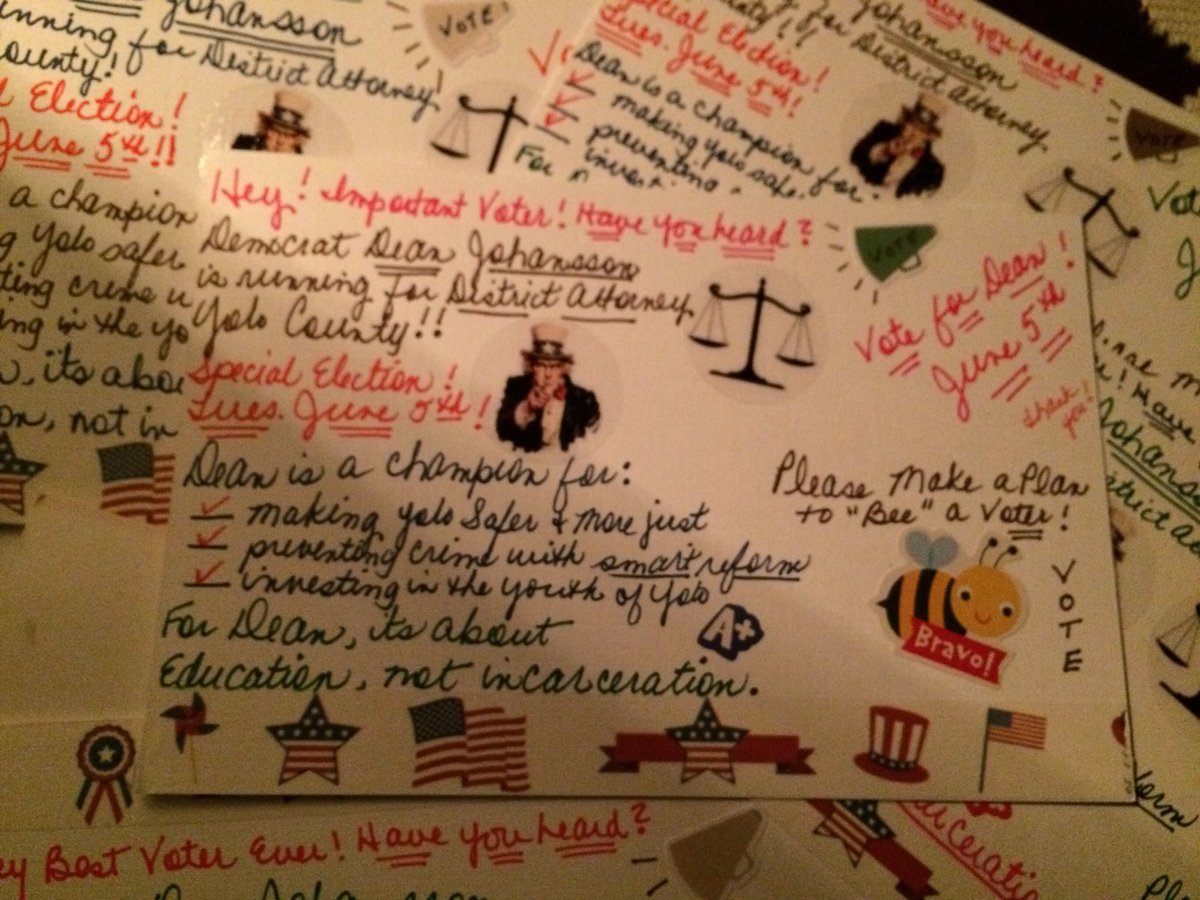 Johansson
nning for District Attorney
County!
Election!
June 5th!!
a champion
g Yolo safer
ting crime
ing in the yo
its abou
on, not in
VOTE!
Special Election!
Tues. June 5th!
Dean is a champion for:
making yolo safe
preventing
invest
For
Johansson
for District Attorney
ave you heard?
VOTE
Hey! Important Voter! Have you heard?
Democrat Dean Johansson
is running for District Attorney
Yolo County!!
VOTE
Special Election!
Tues. June 5th!
Vote for Dean!
June 5th
thank you!
Dean is a champion for:
making yolo Safer & more just
preventing crime with smart reform
investing in the youth of Yolo
For Dean, its about
Education, not incarceration.
A+
Please Make a Plan
to "Bee" a Voter!
Bravo!
VOTE
ey Best Voter Ever! Have you heard?